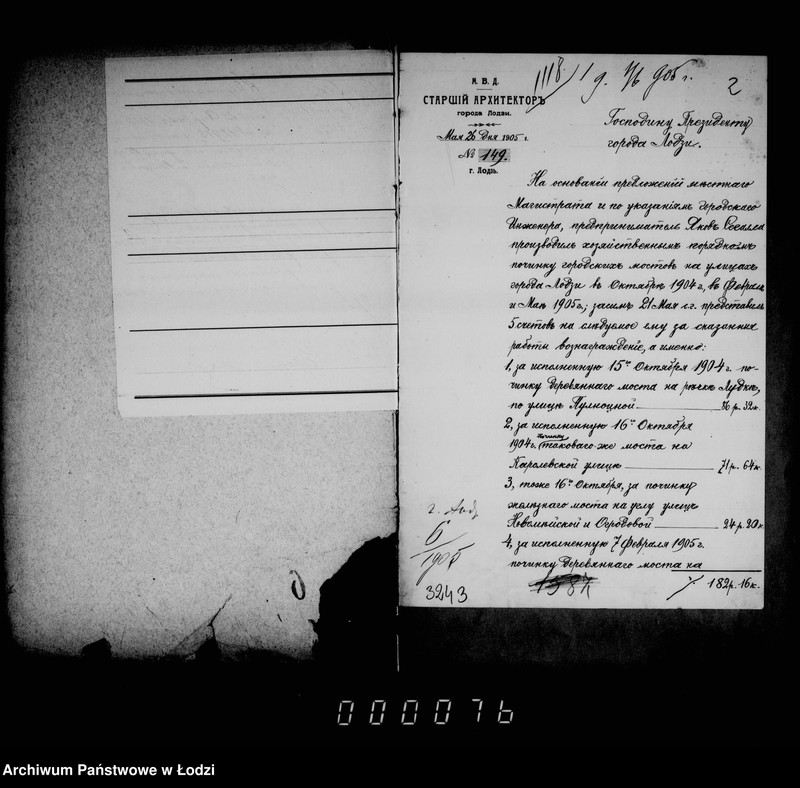 М. В. Д.
СТАРШІЙ АРХИТЕКТОРЪ
города Лодзи.
Мая 26 дня 1905 г.
№ 149.
г. Лодзь.
2
Господину Президенту
города Лодзи.
На основаніи предложеній мѣстнаго
Магистрата и по указаніямъ городскаго
Инженера, предприниматель Яковъ
производилъ хозяйственнымъ порядкомъ
починку городскихъ мостовъ на улицахъ
города Лодзи въ Октябрѣ 1904 г, въ Февралѣ
и Маѣ 1905 г.; засимъ 21 Мая с.г. представилъ
5 счетовъ на слѣдуемое ему за сказанныя
работы вознагражденіе, а именно:
1, за исполненную 15го Октября 1904 г. по-
чинку деревяннаго моста на рѣчкѣ Лудкѣ,
по улицѣ Пулноцной 76 р. 32 к.
2, за исполненную 16го Октября
1904 г. починку таковаго-же моста на
Каролевской улицѣ 71 р. 64 к.
3, тоже 16го Октября, за починку
желѣзнаго моста на углу улицъ
Новомейской и Огродовой 24 р. 20 к.
4, за исполненную 7 Февраля 1905 г.
починку деревяннаго моста на
182 р. 16 к.
6
1905
3243
000076
Archiwum Państwowe w Łodzi